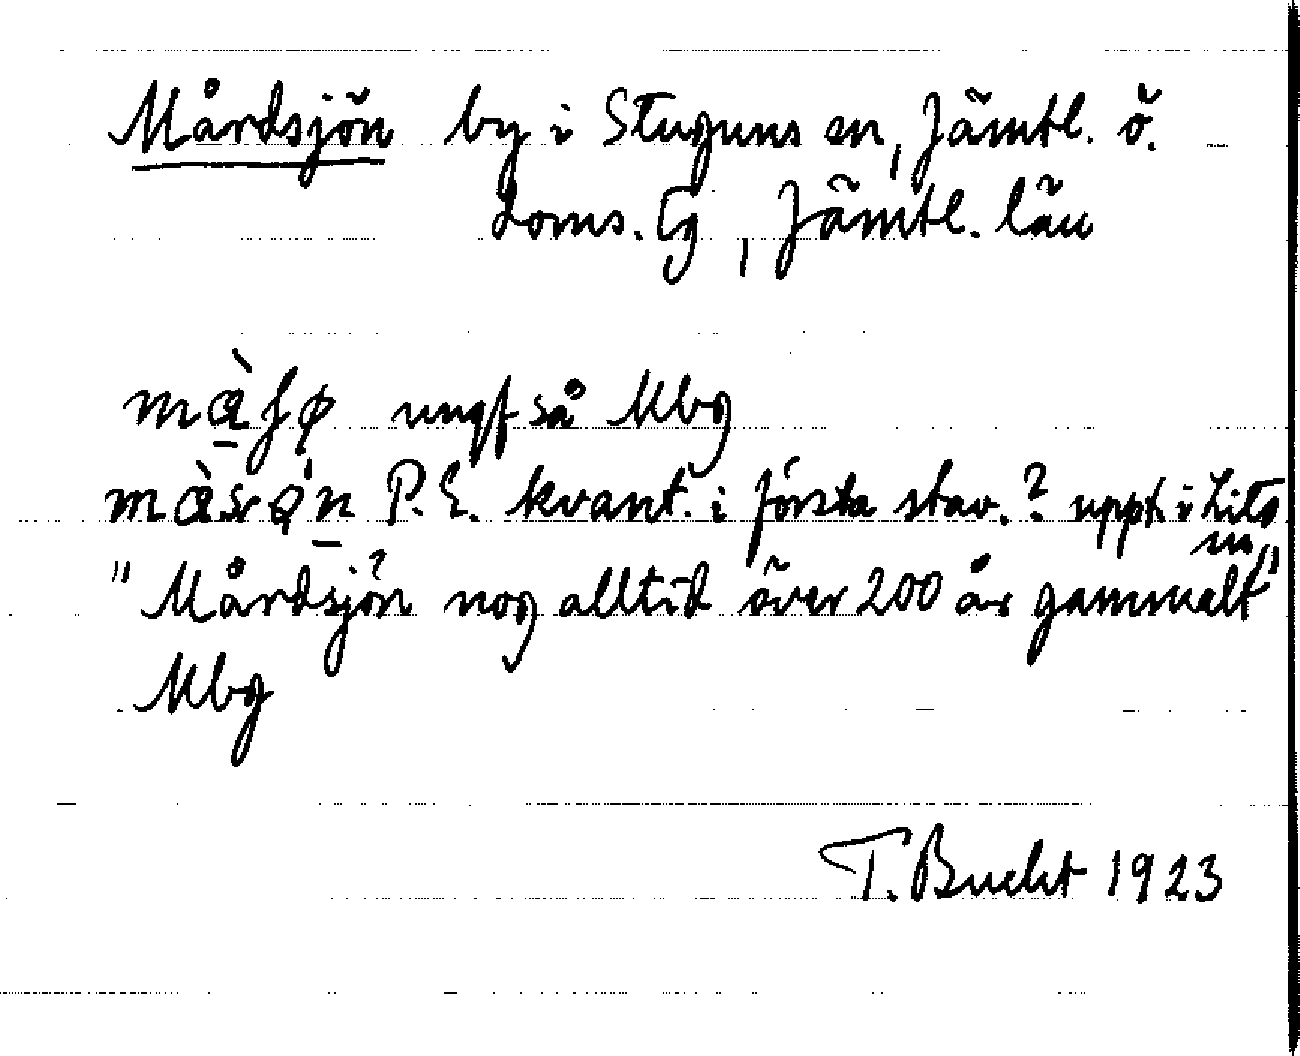 Mårdsjön by i Stuguns sn, Jämtl. ö.
doms. Cg, Jämtl. län
ungf så Mbg
P.E. kvant. i första stav.? uppt. i Lits
sn,
"Mårdsjön nog alltid över 200 år gammalt"
Mbg
T. Bucht 1923